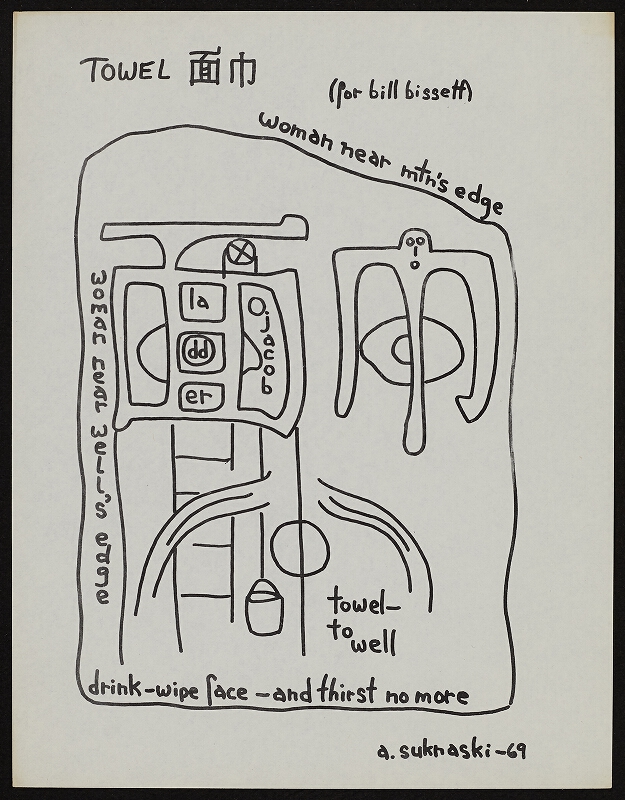 TOWEL 面巾
(for bill bissett)
woman near mtn's edge
woman near well's edge
la
dd
er
O.jacob
towel-
to
well
drink-wipe face-and thirst no more
a. suknaski-69